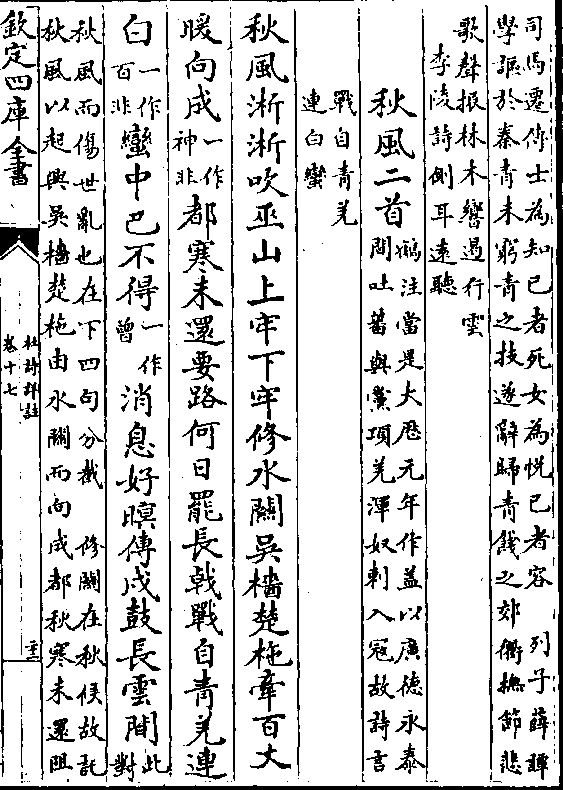 司馬遷傳士為知己者死女為悦己者容　列子薛譚
學謳於秦青未窮青之技遂辭歸青餞之郊衢撫節悲
歌聲振林木響遏行雲
李陵詩側耳遠聽
秋風二首鶴注當是大厯元年作葢以廣德永泰
間吐蕃與黨項羌渾奴剌入寇故詩言
戰自青羌
連白蠻
秋風淅淅吹巫山上牢下牢修水關吳檣楚柂牽百丈
暖向成一作神非都寒未還要路何日罷長戟戰自青羌連
白一作百非蠻中巴不得一作曾消息好暝傳戍鼓長雲間此對
秋風而傷世亂也在下四句分截　修關在秋候故託
秋風以起興吳檣楚柂由水關而向成都秋寒未還阻
欽定四庫全書
杜詩詳註
卷十七